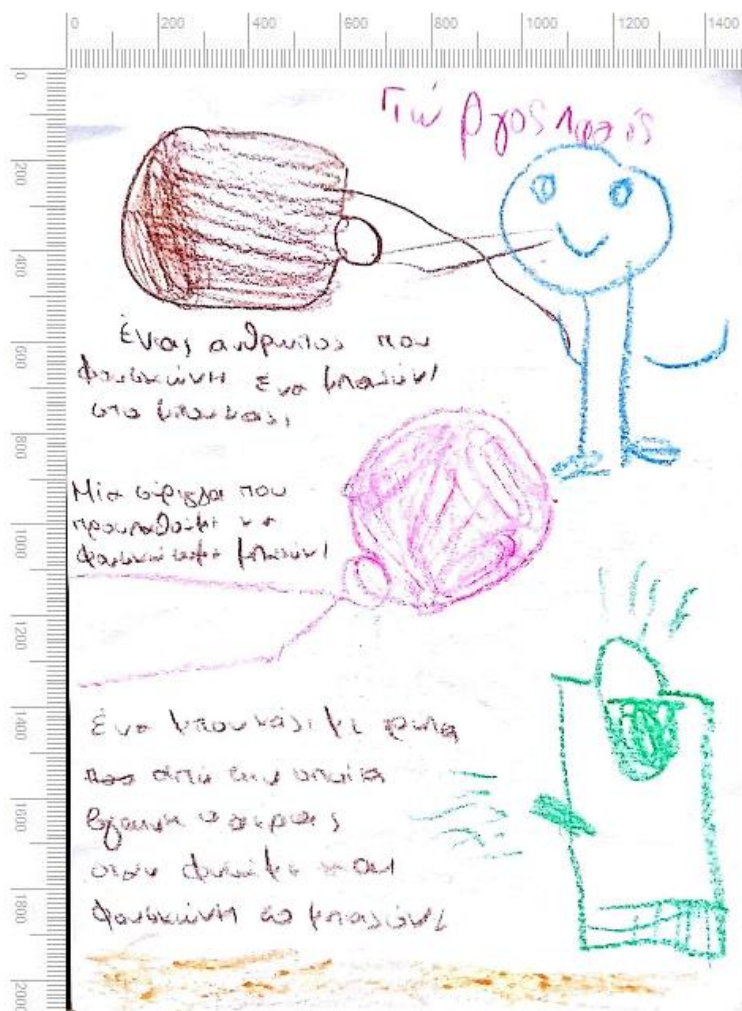 0 200 400 600 800 1000 1200 1400
0
200
400
600
800
1000
1200
1400
1600
1800
2000
Γιώργος
Ένιας ανθρωπος που
φουσκώνη ένα μπαλόνι
στο μπουκαλι
Μία σύριγγα που
προσπαθούμε να
μπαλόνι
Ένα μπουκάλι με τρυπα
από την οποία
βγαινη ο αερας
όταν φυσάμε και
φουσκώνη το μπαλόνι